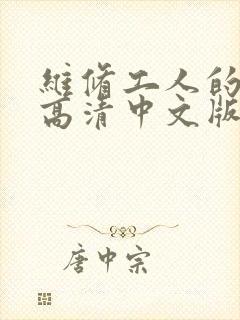 維脩工人的
高清中文版
唐中宗